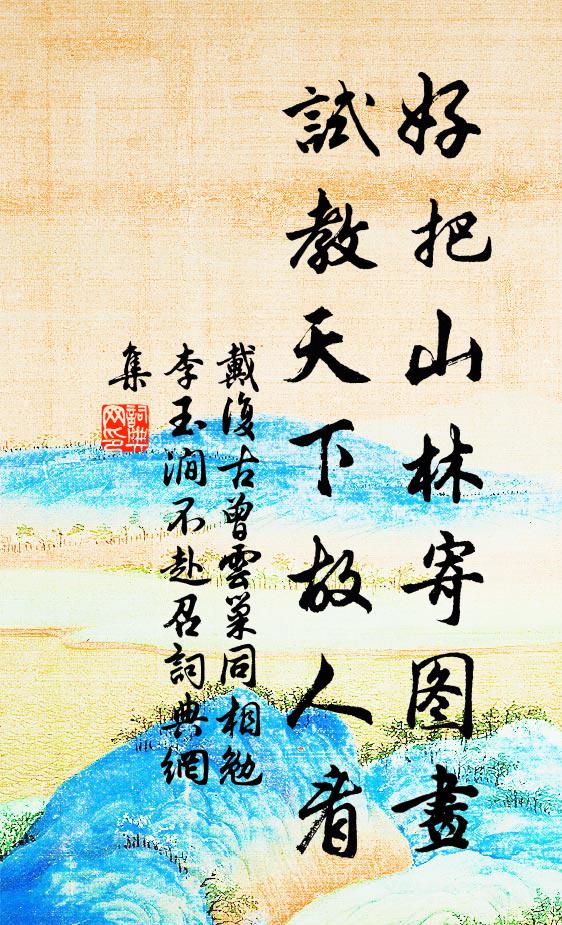 好把山林寄图畫
試教天下故人看
戴復古曾雲巢同相勉
李玉澗不赴召詞典網
集
詞典
网印